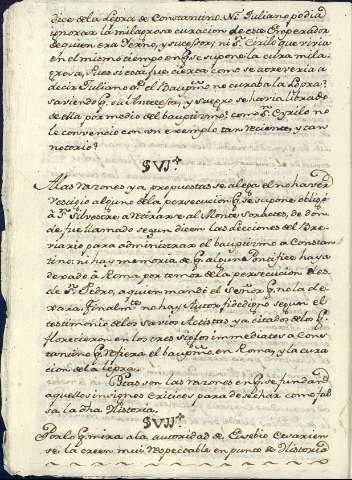 dice de la Lepra de Constantino. Ni Juliano podia
ignorar la milagrosa curacion de este Emperador
de quien era Yerno, y sucesor; ni S. Cyrilo que vivia
en el mismo tiempo en q.e se supone la cura mila-
grosa, Pues si esta fue cierta como se atreveria a
decir Juliano q.e el Baup.mo no curaba la Lepra?
saviendo q.e su Antecesor, y suegro se havia librado
de ella por medio del bauptismo? como S.n Cyrilo no
le convencio con un exemplo tan reciente, y tan
notorio?
§VI.
A las razones ya propuestas se alega el no haver
vestigio alguno de la persecucion q.e se supone obligó
a S.n Silvestre a retirarse al Monte Soractes, de don-
de fue llamado segun dicen las lecciones del Bre-
viario para administrar el bauptismo a Constan-
tino: ni hay memoria de q.e algun Pontifice haya
dexado a Roma por temor de la persecucion des-
de S.n Pedro, a quien mandó el Señor q.e no la de-
xara. Finalm.te no hay Autor fidedigno segun el
testimonio de los savios citados q.e
florecieron en los tres siglos immediatos a Cons-
tantino q.e refiera el baup.mo en Roma, y la cura-
cion de la lepra.
Estas son las razones en q.e se fundan
aquellos insignes Criticos para desechar como fal-
sa la dha Historia.
§VII.
Por lo q.e mira a la autoridad de Eusebio Cesarien-
se la creen mui respectable en punto de Historia